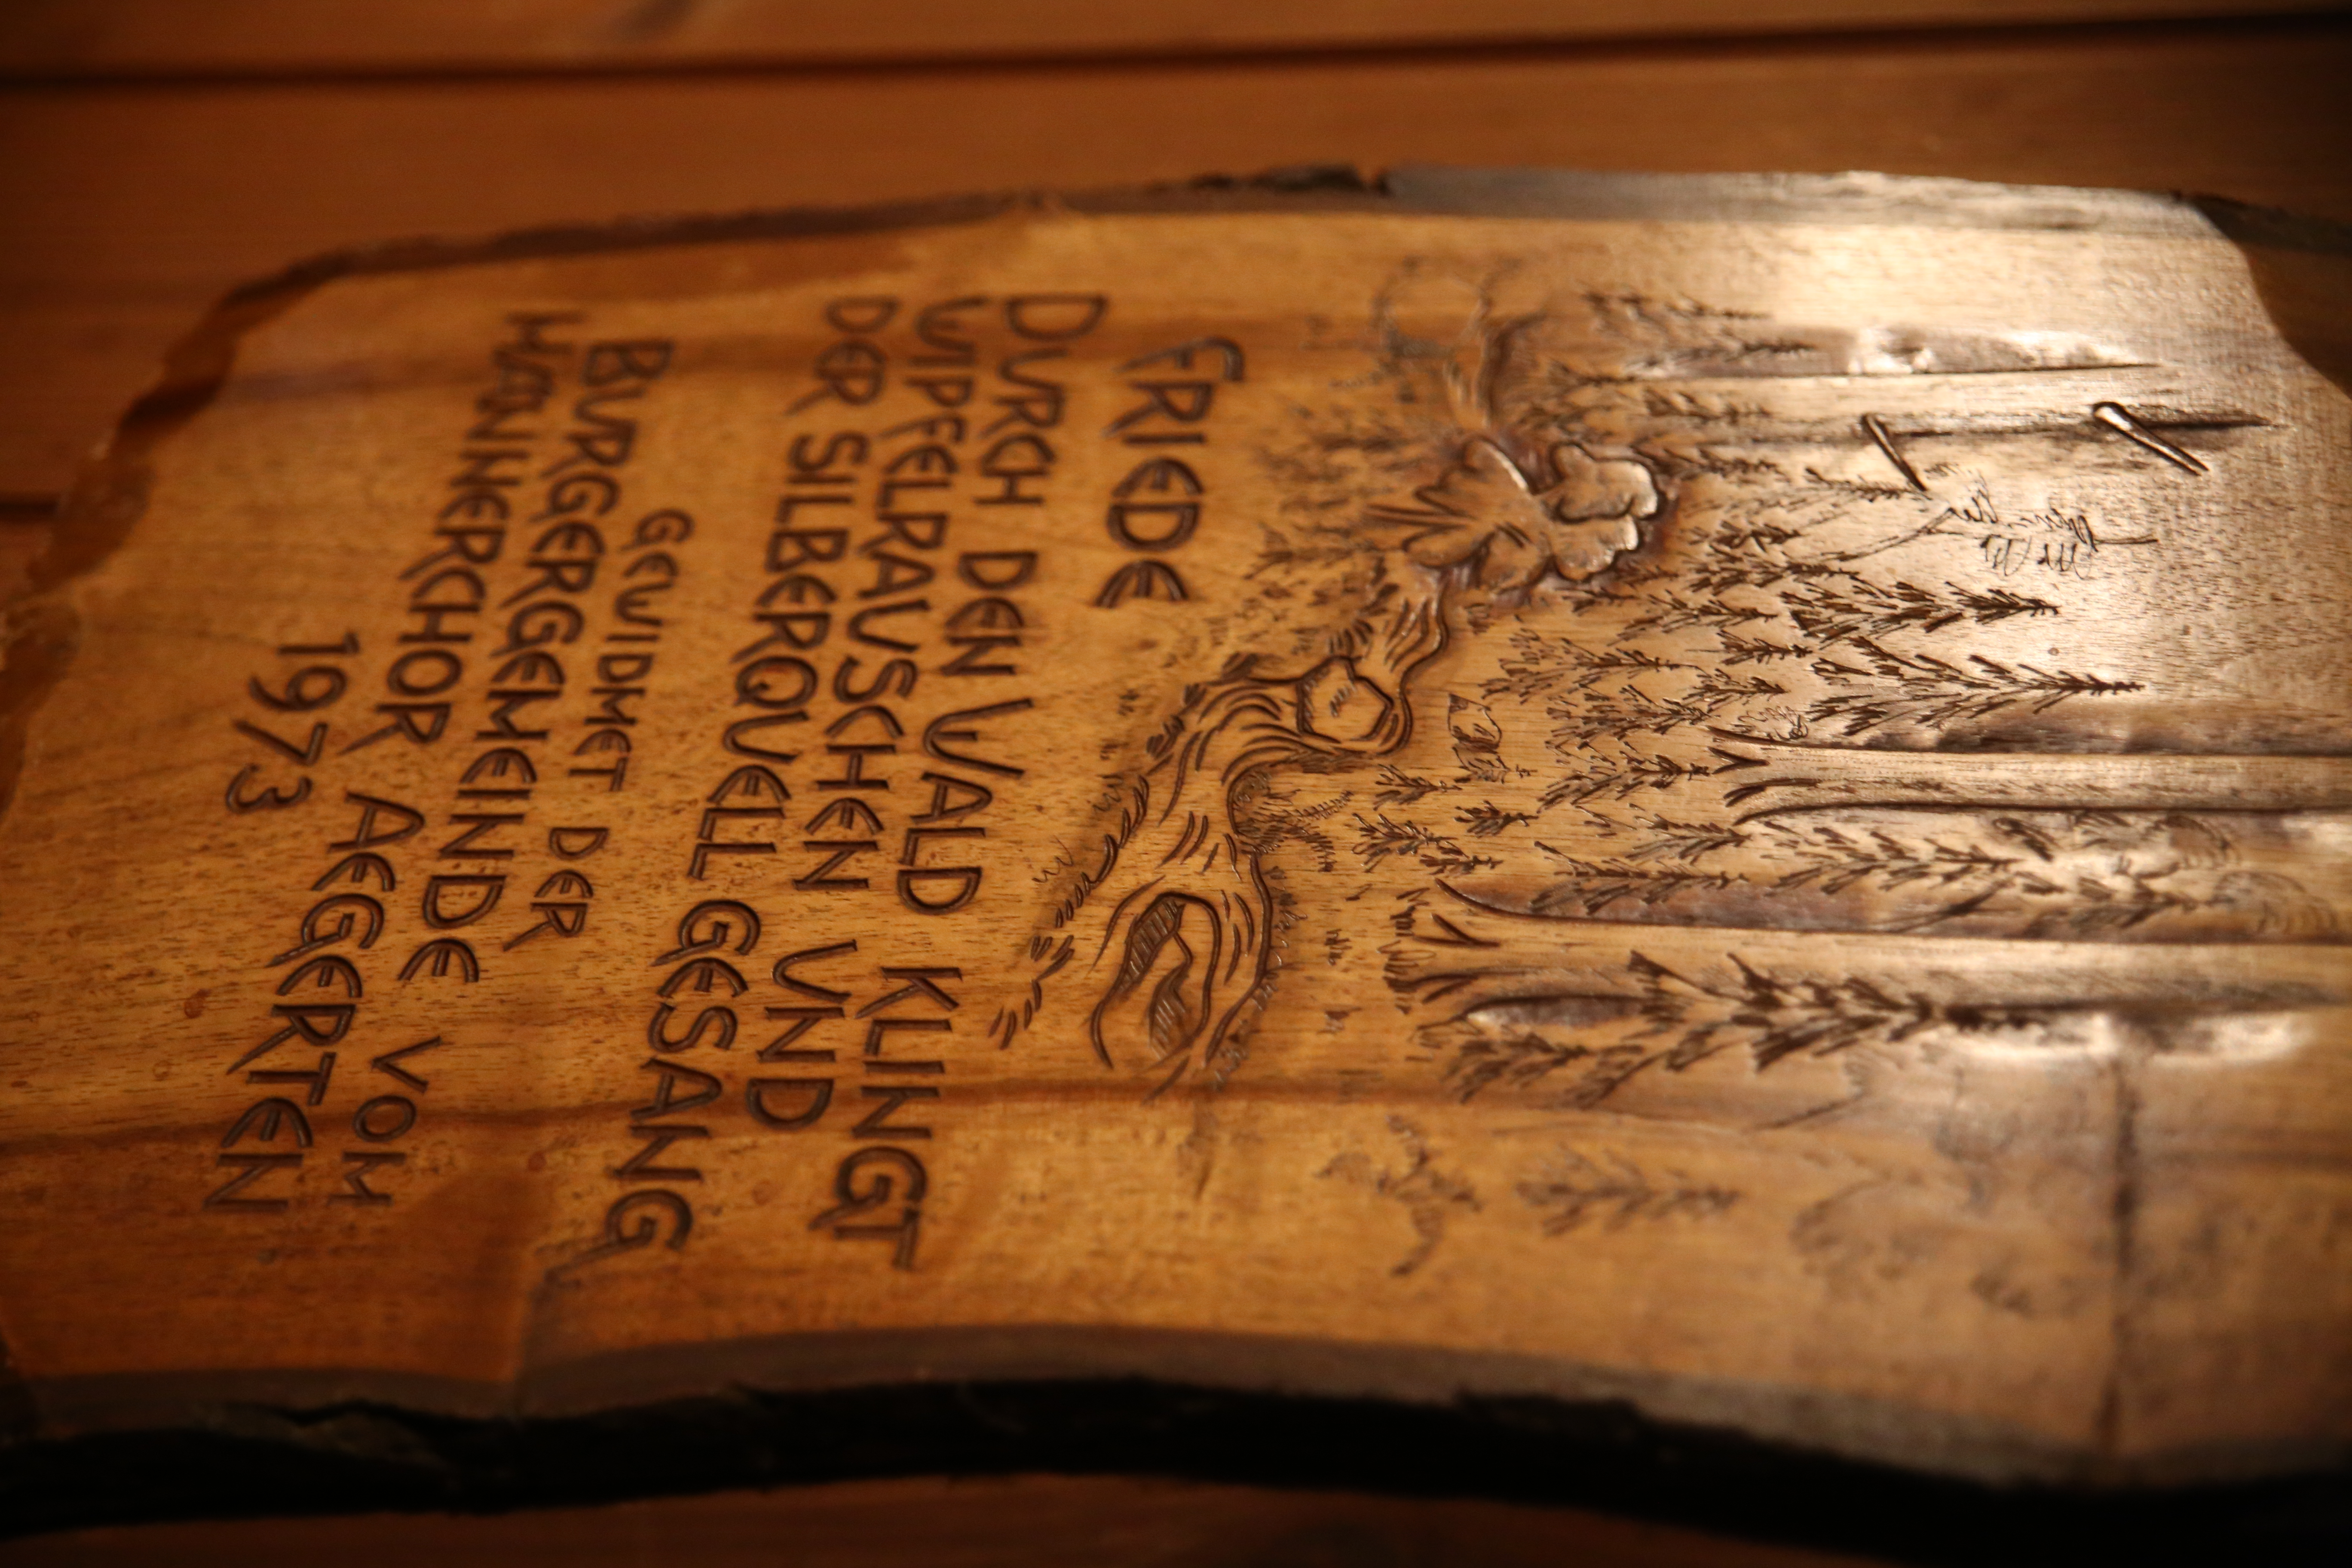 FRIEDE
DVRCH DEN WALD KLINGT
WIPFELRAVSCHEN VND
DER SILBERQVELL GESANG
GEWIDMET DER
BVRGERGEMEINDE VOM
MÄNNERCHOR AEGERTEN
1973